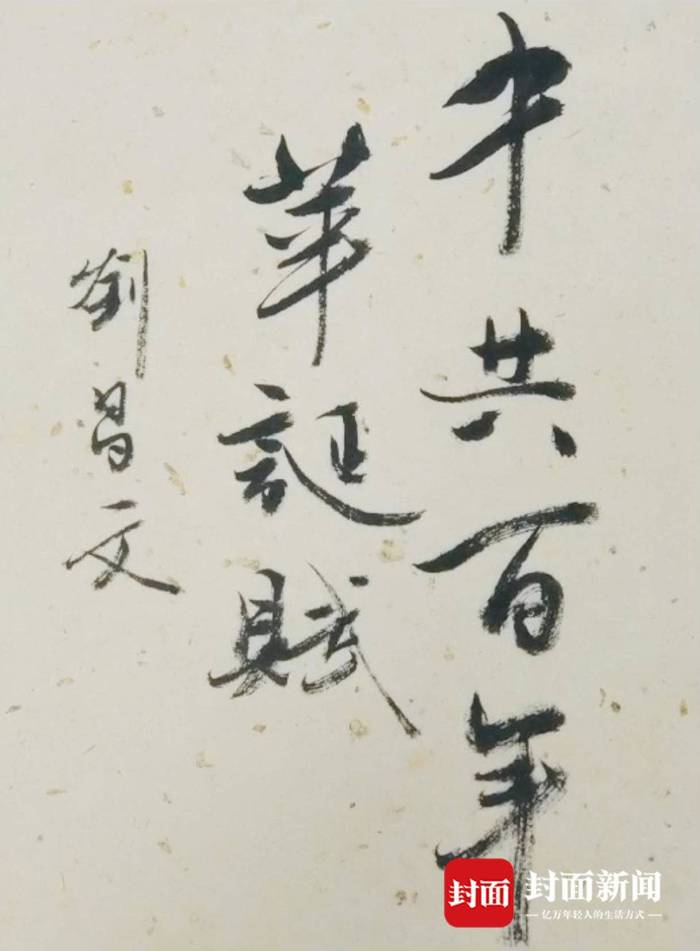 中共百年
華誕賦
劉昌文
封面
封面新闻
亿万年轻人的生活方式